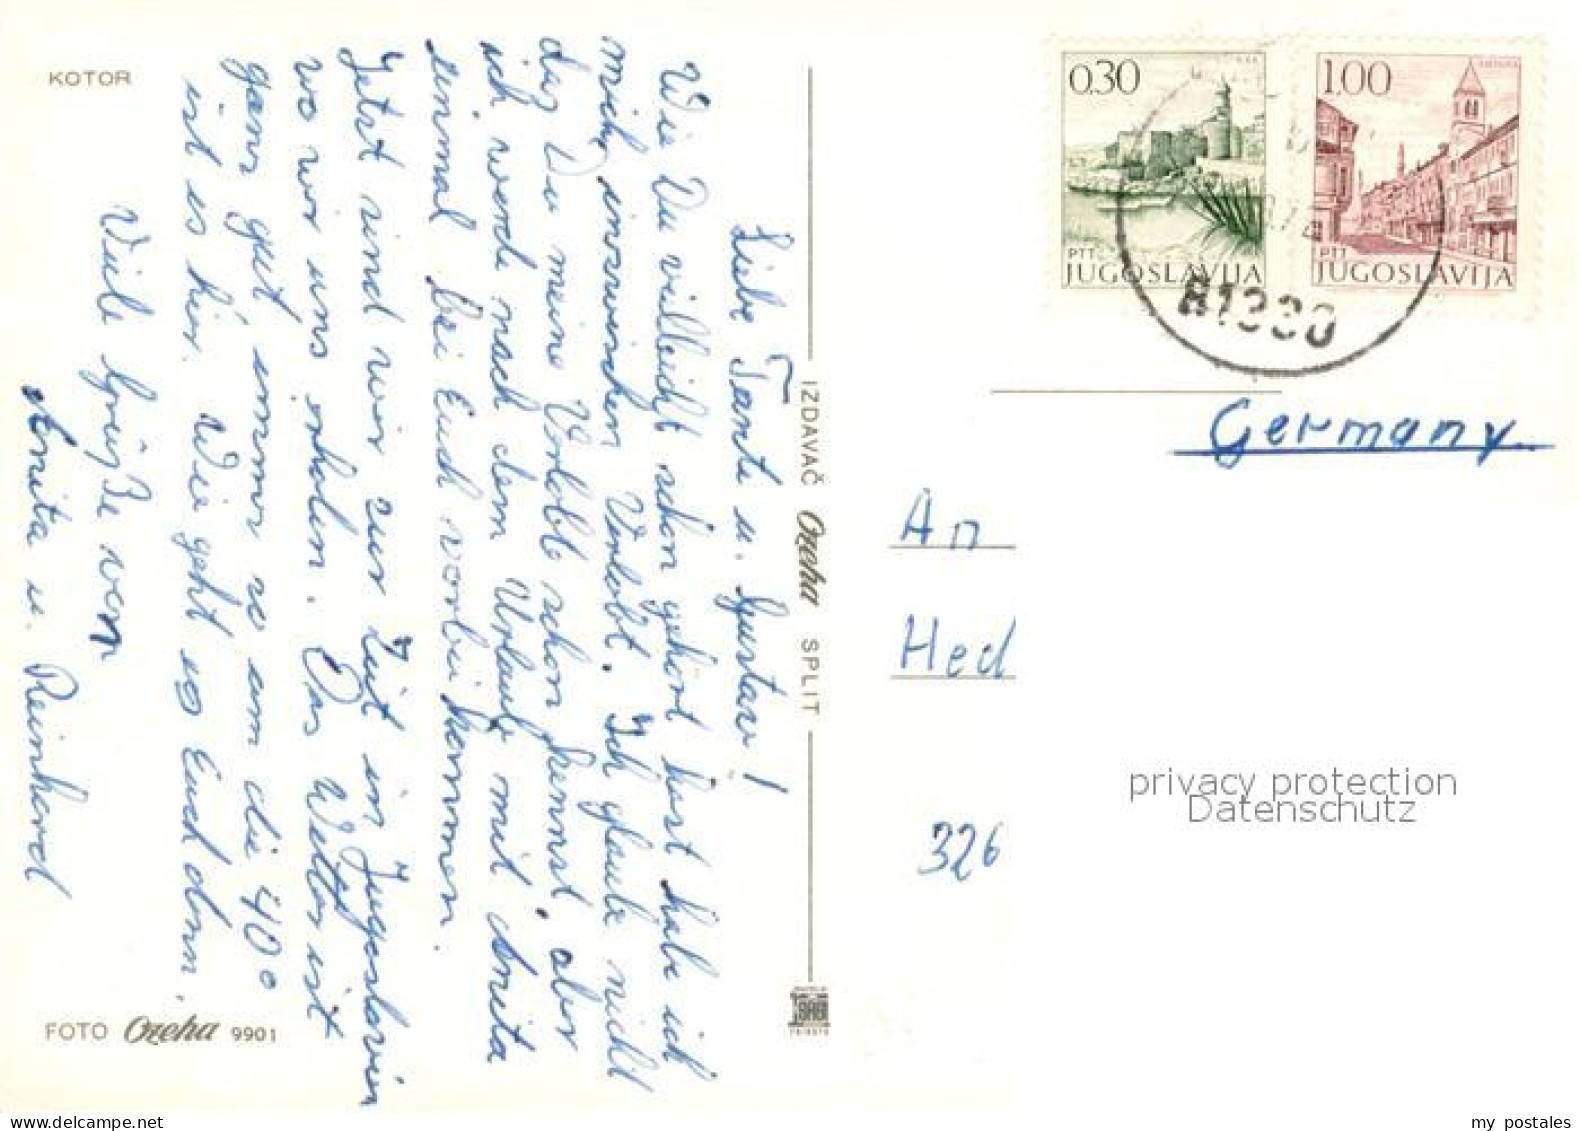 KOTOR
Liebe Tante u. Gustav!
Wie Du vielleicht schon gehört hast habe ich
mich inzwischen Verlobt. Ich glaube nicht
daß Du meine Verlobte schon kennst, aber
ich werde nach dem Urlaub mit Anita
einmal bei Euch vorbei kommen.
Jetzt sind wir zur Zeit in Jugoslavien
wo wir uns erholen. Das Wetter ist
ganz gut, immer so um die 40°
ist es hier. Wie geht es Euch denn.
Viele Grüße von
Anita u. Reinhard
FOTO Ozeha 9901
IZDAVAČ Ozeha SPLIT
0.30
PTT
JUGOSLAVIJA
1.00
PTT
JUGOSLAVIJA
81330
Germany
An
Hed
326
privacy protection
Datenschutz
my postales